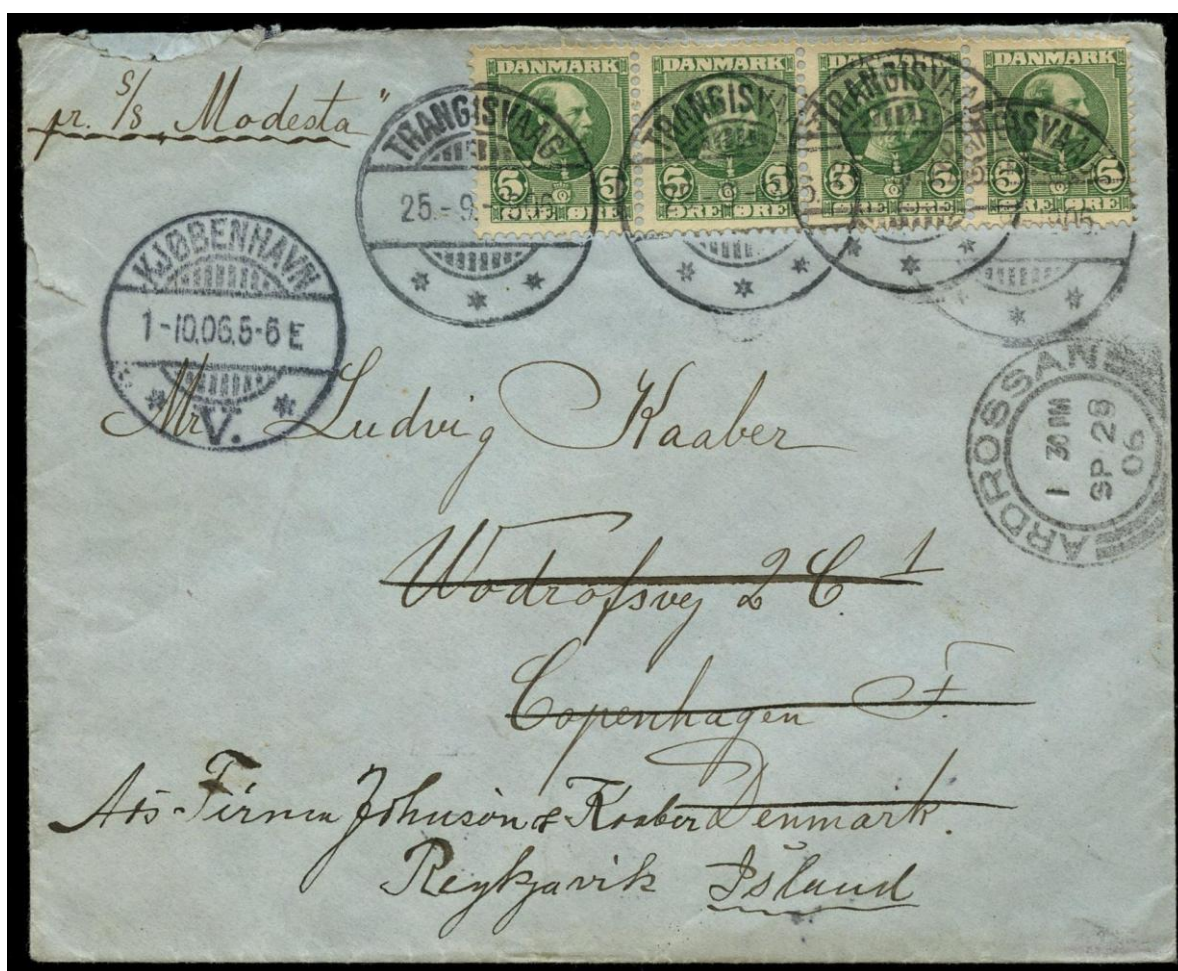 pr. S/S „Modesta"
DANMARK DANMARK DANMARK DANMARK
5 5 5 5 5 5 5 5
ØRE ØRE ØRE ØRE ØRE ØRE ØRE ØRE
TRANGISVAAG
25.-9.-1906.
TRANGISVAAG
TRANGISVAAG
TRANGISVAAG
KJØBENHAVN
1-10.06.5-6 E
V.
ARDROSSAN
1 30 PM
SP 28
06
Mr Ludvig Kaaber
Wodrofsvej 2 C 1
Copenhagen F.
Denmark.
Ads Firma Johnson & Kaaber
Reykjavik Island